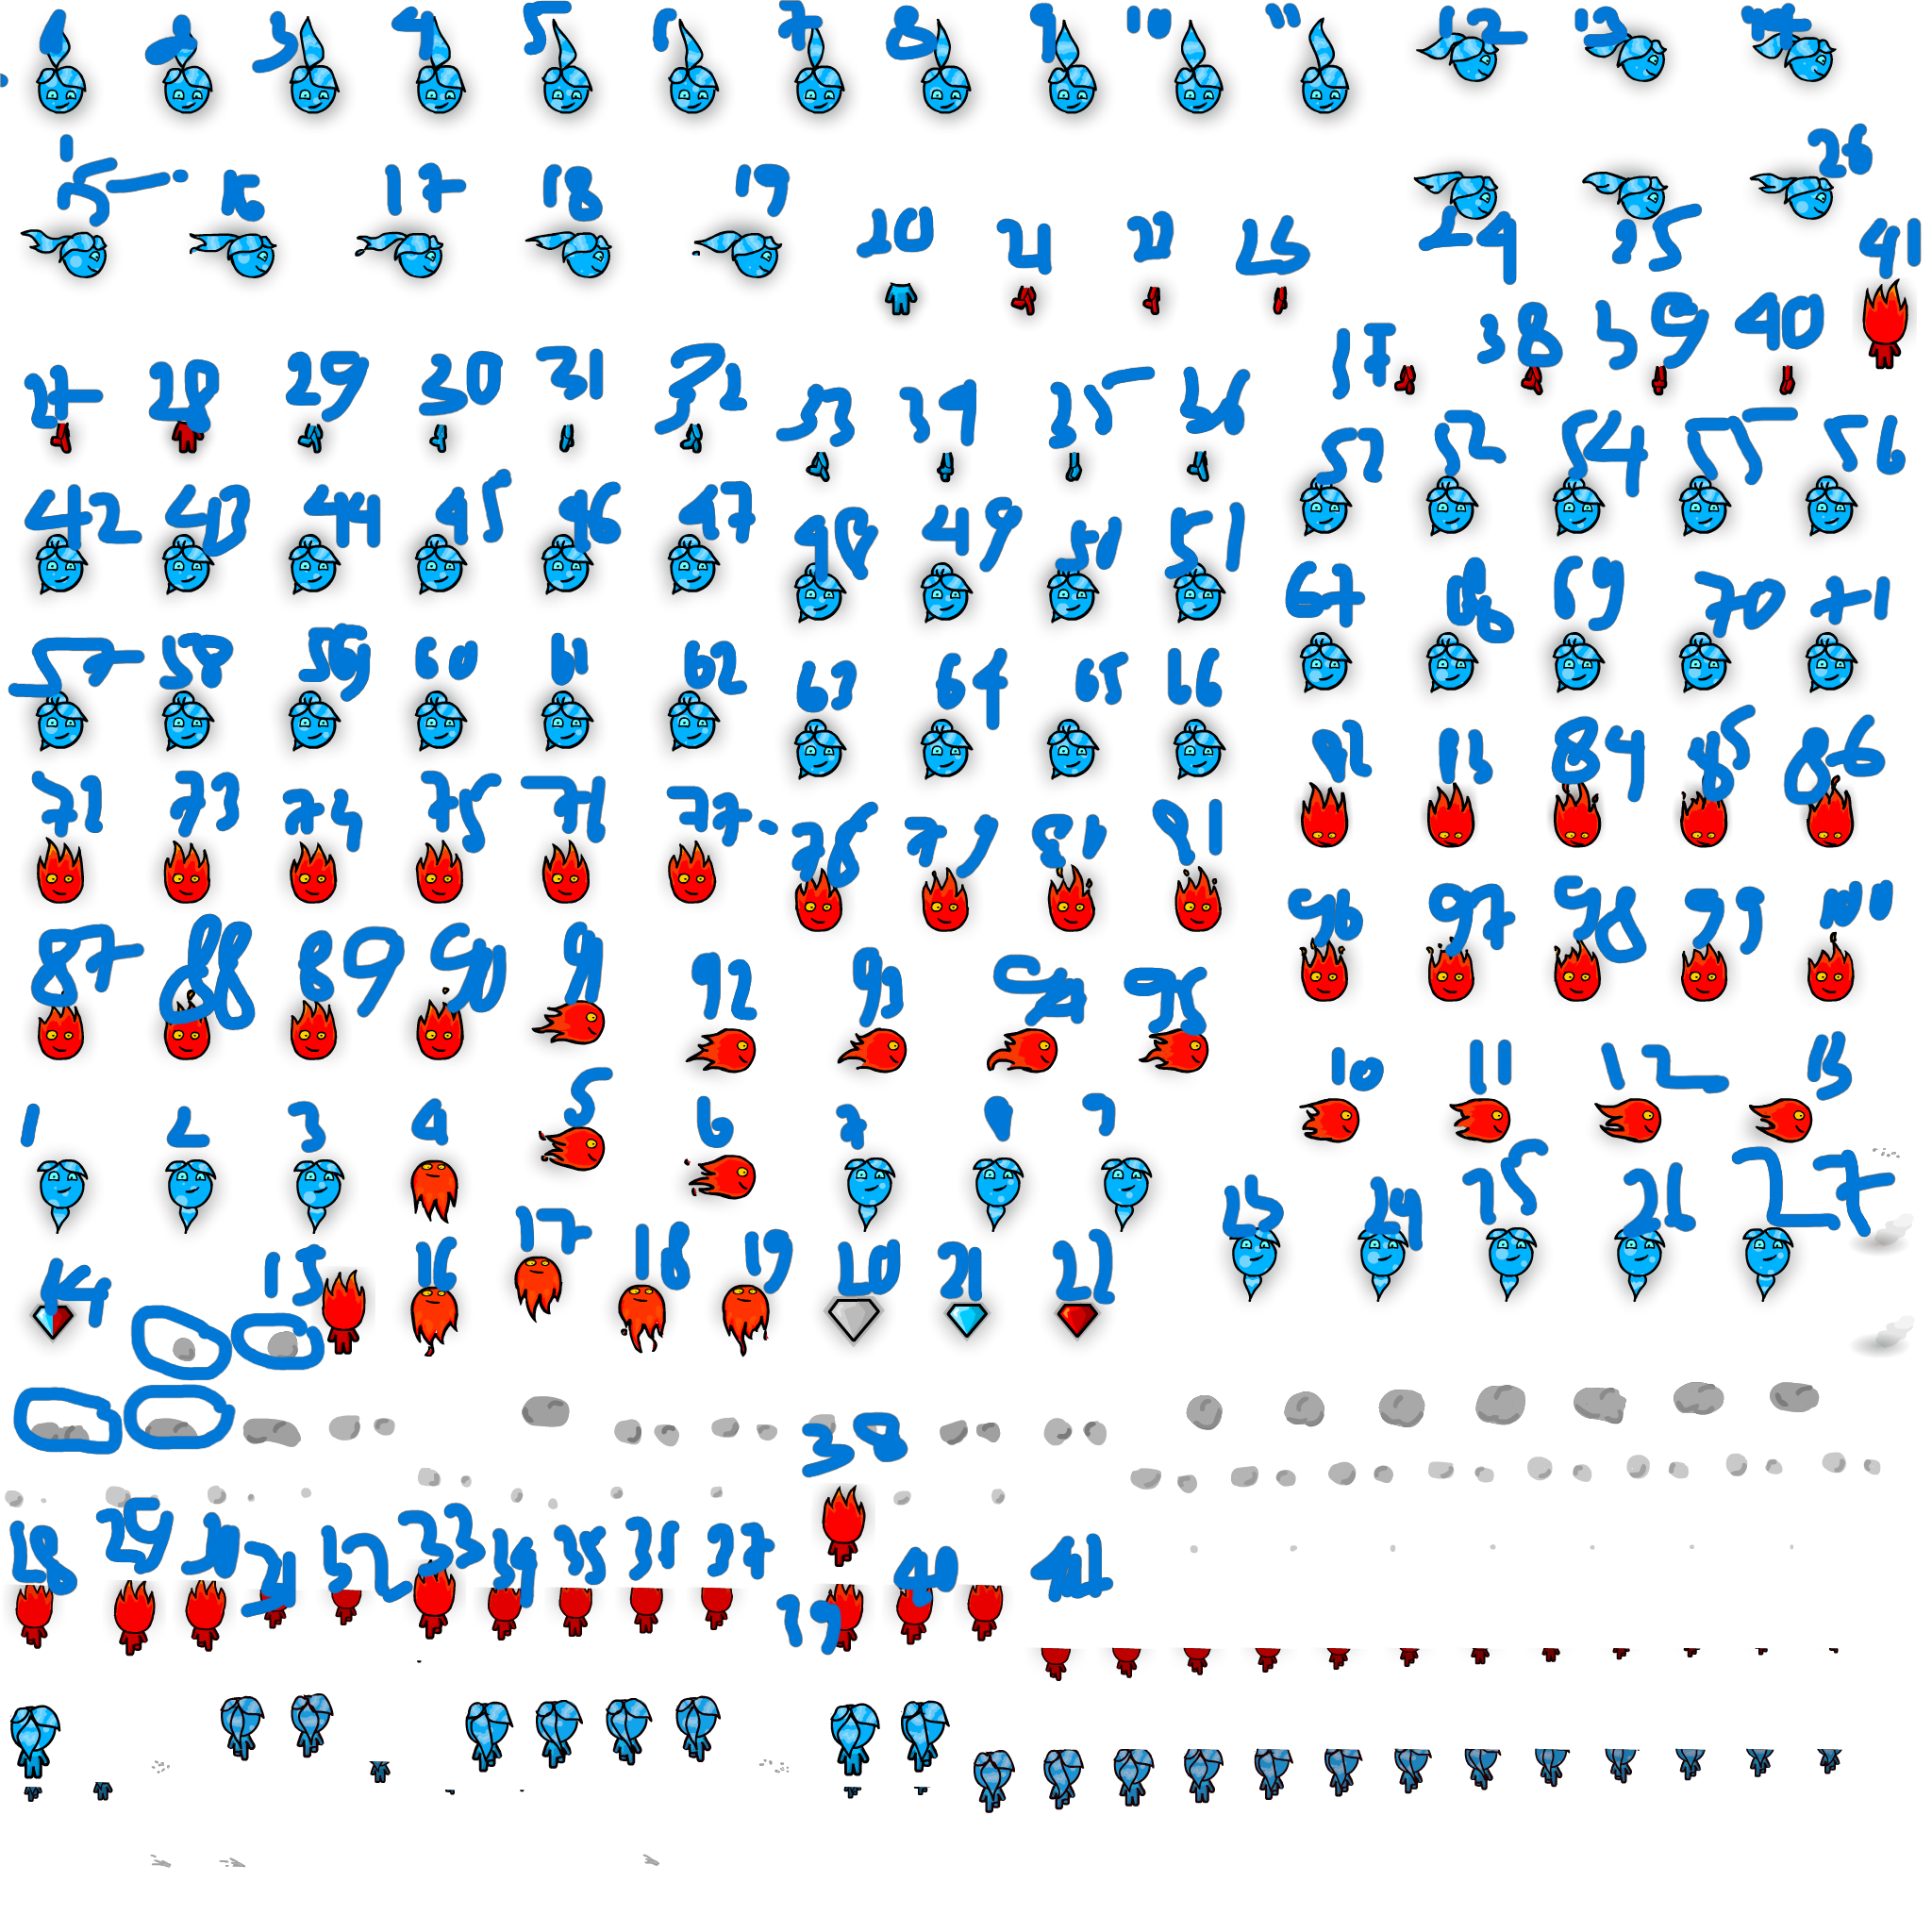 1 2 3 4 5 6 7 8 9 10 11 12 13 14
15 16 17 18 19 20 21 22 23 24 25 26
27 28 29 30 31 32 33 34 35 36 37 38 39 40 41
42 43 44 45 46 47 48 49 50 51 52 52 54 55 56
57 58 59 60 61 62 63 64 65 66 67 68 69 70 71
71 73 74 75 76 77 78 79 81 82 83 84 85 86
87 88 89 90 91 92 93 94 95 96 97 98 99 100
1 2 3 4 5 6 7 8 9 10 11 12 13
14 15 16 17 18 19 20 21 22 23 24 25 26 27
38
28 29 30 31 32 33 34 35 36 37 19 40 41